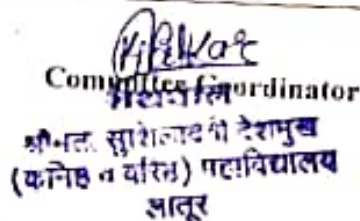 Committee Coordinator
श्रीमती. सुशिलादेवी देशमुख
(कनिष्ठ व वरिष्ठ) महाविद्यालय
लातूर